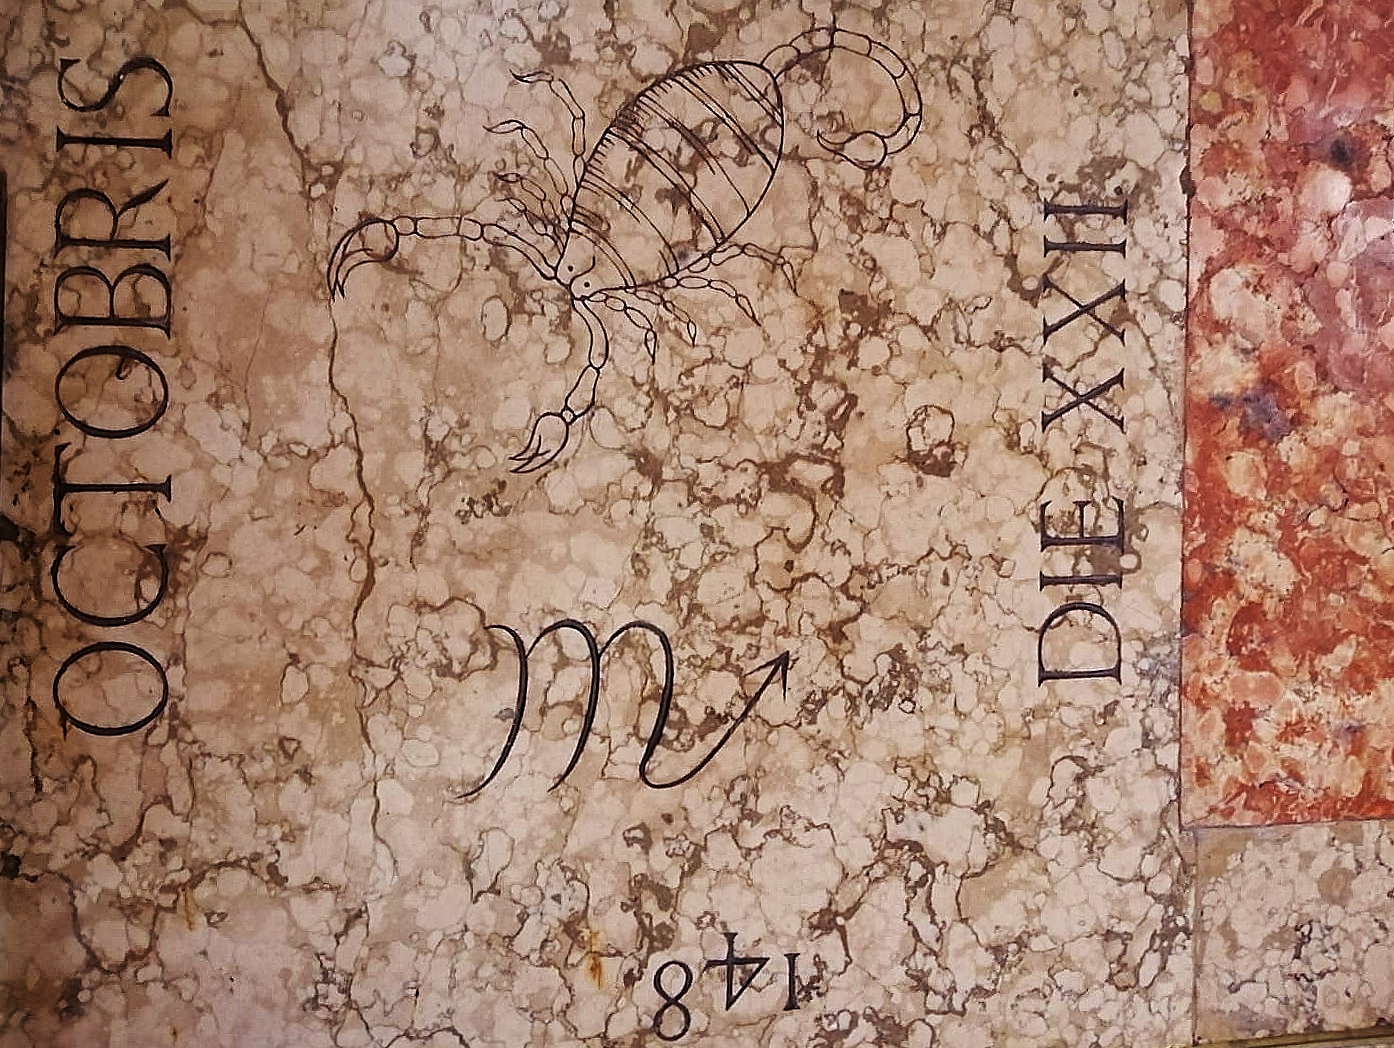 OCTOBRIS
DIE XXII
148